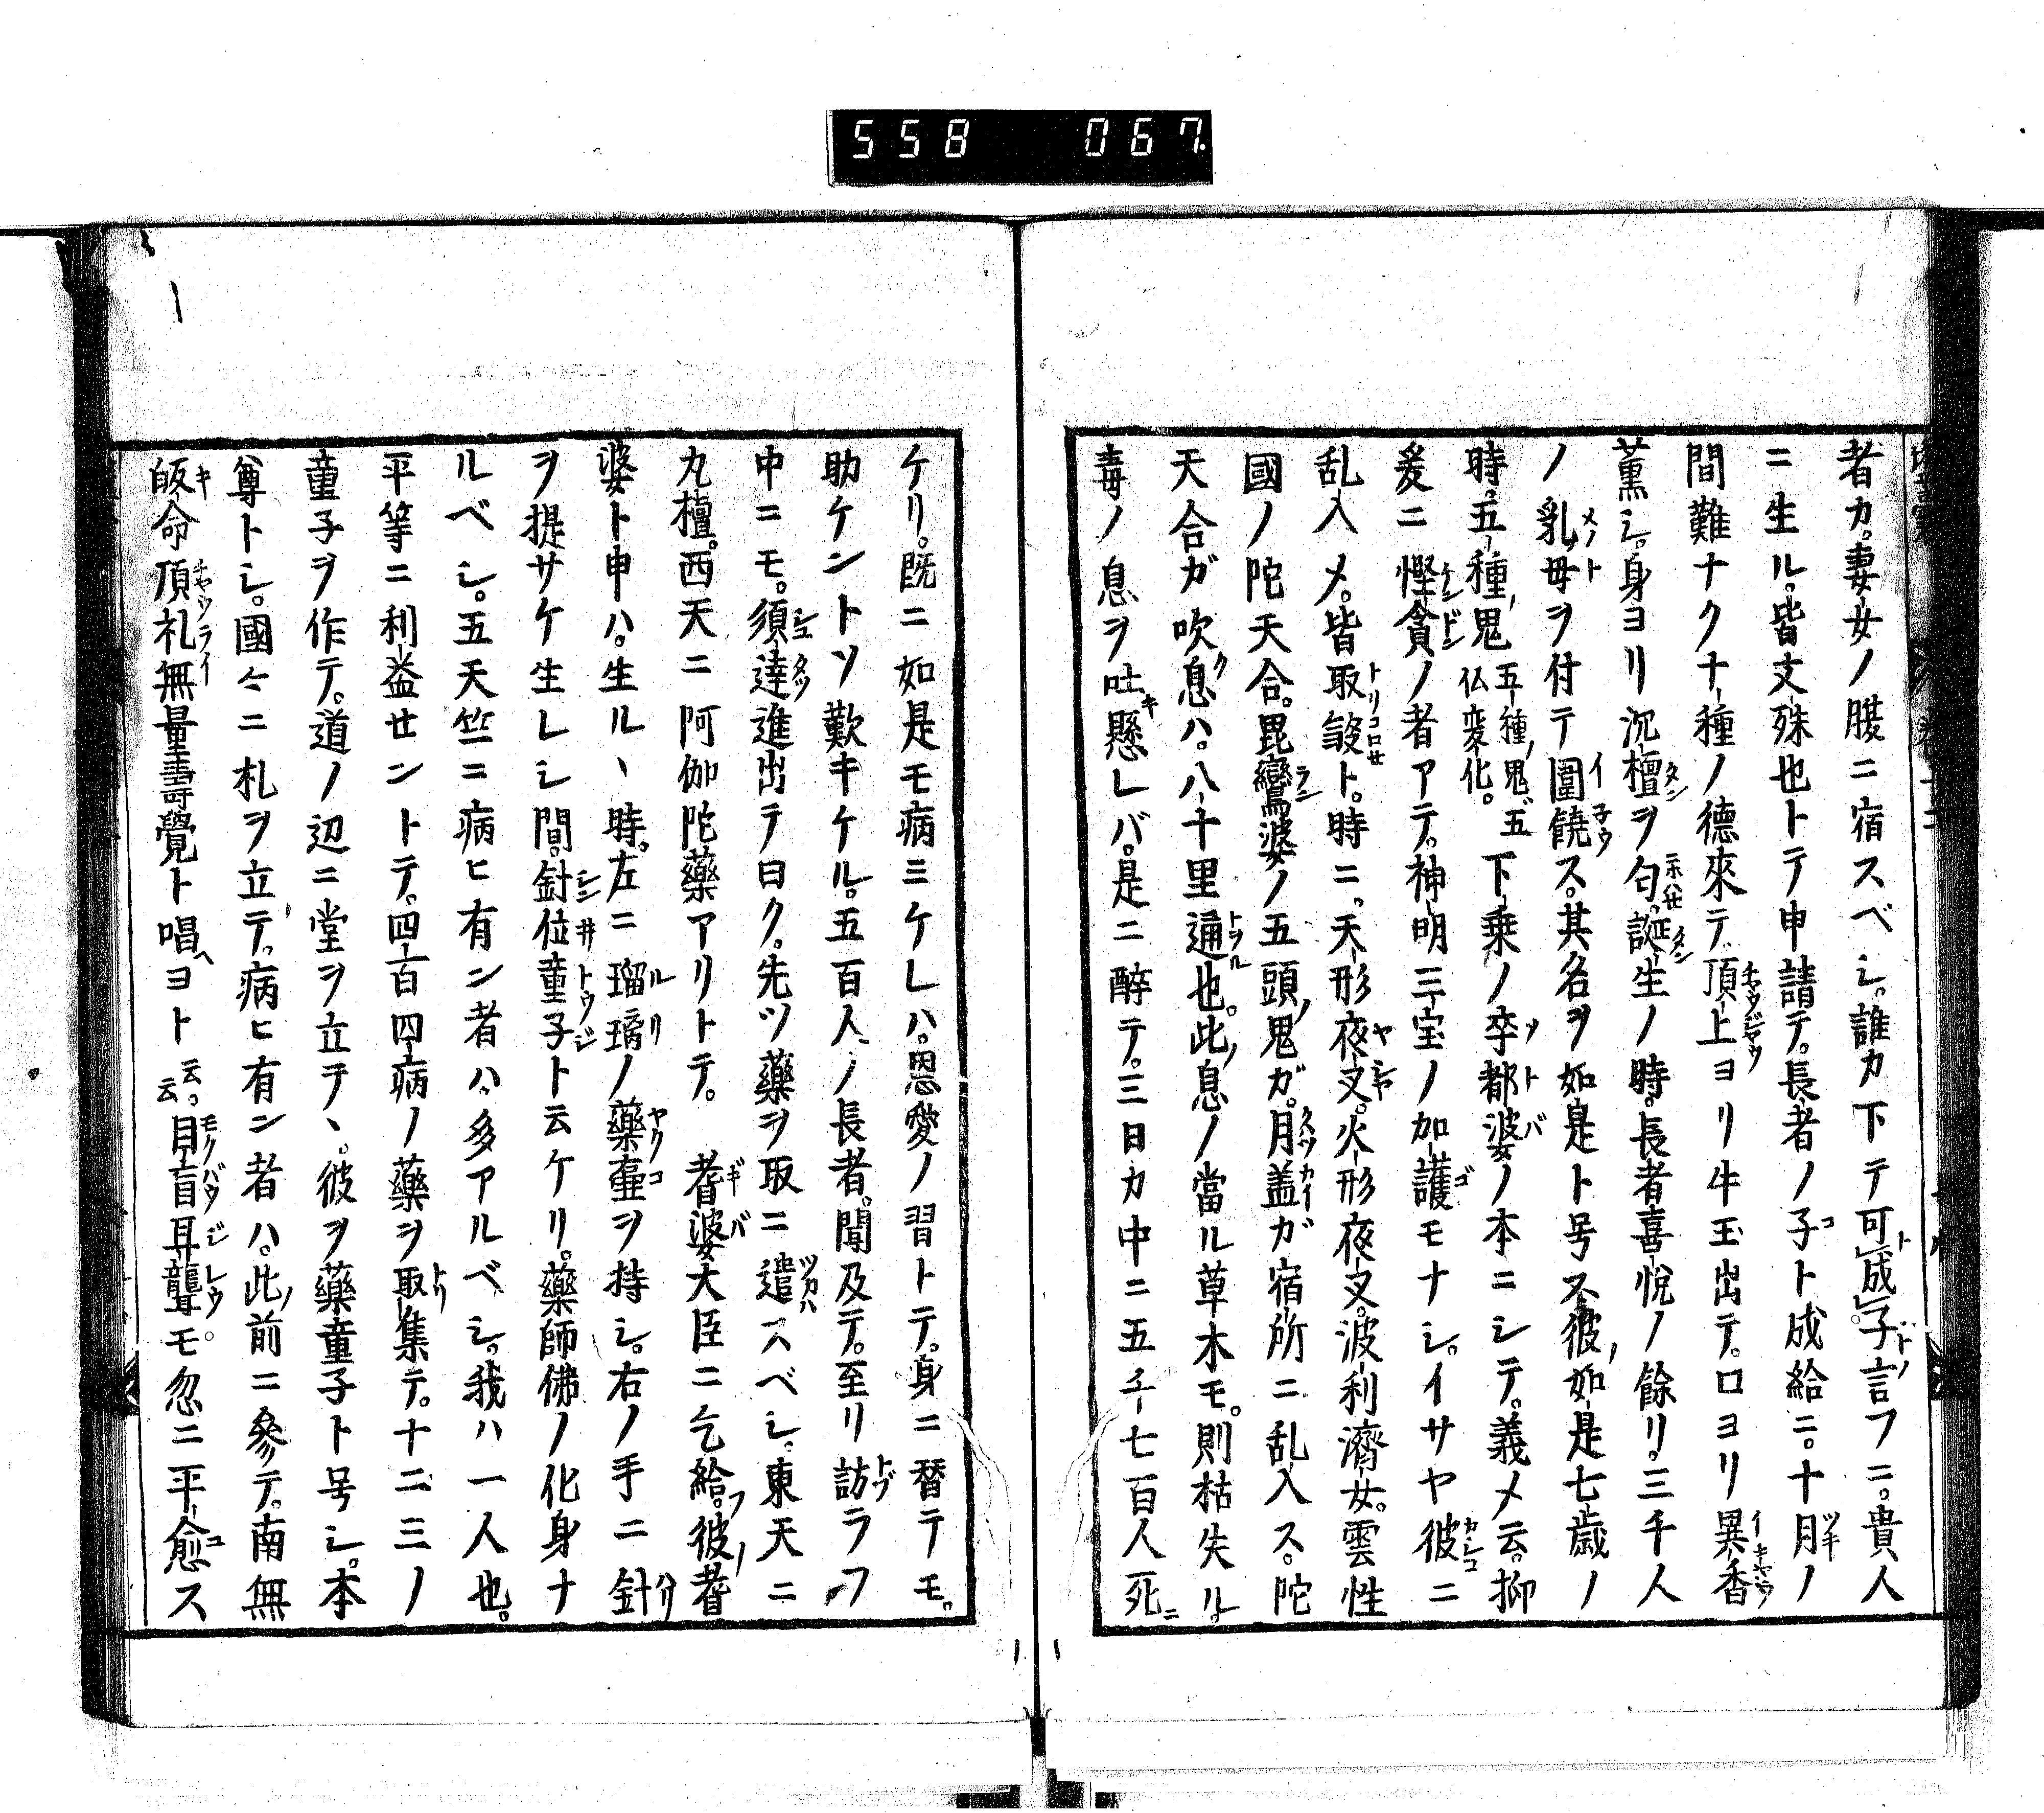 558 067.
者カ。妻女ノ腹ニ宿スベシ。誰カ下テ可成子言フニ。貴人
ニ生ル。皆文殊也トテ申請テ。長者ノ子ト成給ニ。十月ノ
間難ナクナ種ノ德來テ。頂上ヨリ牛玉出テ。口ヨリ異香
薫シ。身ヨリ沉檀ヲ匂。誕生ノ時。長者喜悦ノ餘リ。三千人
ノ乳母ヲ付テ圍饒ス。其名ヲ如是ト号ス。彼如是七歳ノ
時。五種鬼五種ノ鬼。五仏変化。下乗ノ卒都婆ノ本ニシテ。義メ云。抑
爰ニ慳貪ノ者アテ。神明三宝ノ加護モナシ。イサヤ彼ニ
乱入メ。皆取殺ト。時ニ。天形夜叉。火形夜叉。波利濟女。雲性
國ノ陀天合。毘鸞婆ノ五頭ノ鬼ガ。月盖ガ宿所ニ乱入ス。陀
天合ガ吹息ハ。八十里通也。此息ノ當ル草木モ。則枯失ル。
毒ノ息ヲ吐懸レバ。是ニ醉テ。三日カ中ニ五千七百人死ニ
ケリ。既ニ如是モ病ミケレハ。恩愛ノ習トテ。身ニ替テモ。
助ケントソ歎キケル。五百人ノ長者。聞及テ。至リ訪ラフ
中ニモ。須達進出テ曰ク。先ツ藥ヲ取ニ遣スベシ。東天ニ
九檀。西天ニ阿伽陀藥アリトテ。耆婆大臣ニ乞給フ。彼ノ耆
婆ト申ハ。生ルヽ時。左ニ瑠璃ノ藥壷ヲ持シ。右ノ手ニ針
ヲ提サケ生レシ間。針位童子ト云ケリ。藥師佛ノ化身ナ
ルベシ。五天竺ニ病ヒ有ン者ハ。多アルベシ。我ハ一人也。
平等ニ利益セントテ。四百四病ノ藥ヲ取集テ。十二三ノ
童子ヲ作テ。道ノ辺ニ堂ヲ立テヽ。彼ヲ藥童子ト号シ。本
尊トシ。國々ニ札ヲ立テ。病ヒ有ン者ハ。此ノ前ニ參テ。南無
皈命頂礼無量壽覺ト唱ヘヨト云云。目盲耳聾モ忽ニ平愈ス